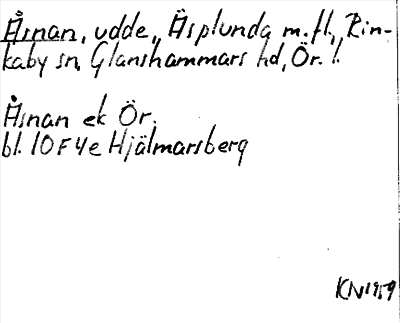 Åsnan, udde, Äsplunda m.fl., Rin-
kaby sn, Glanshammars hd, Ör. l.
Åsnan ek Ör.
bl. 10F4e Hjälmarsberg
KN1959